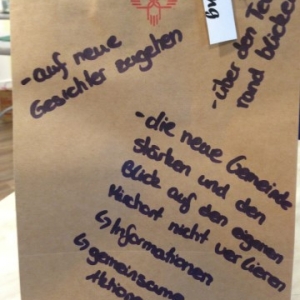 -auf neue
Gesichter zugehen
-über den Te
rand
-die neue Gemeinde
stärken und den
Blick auf den eigenen
Kirchort nicht verlieren
↳Informationen
↳gemeinsame
ng